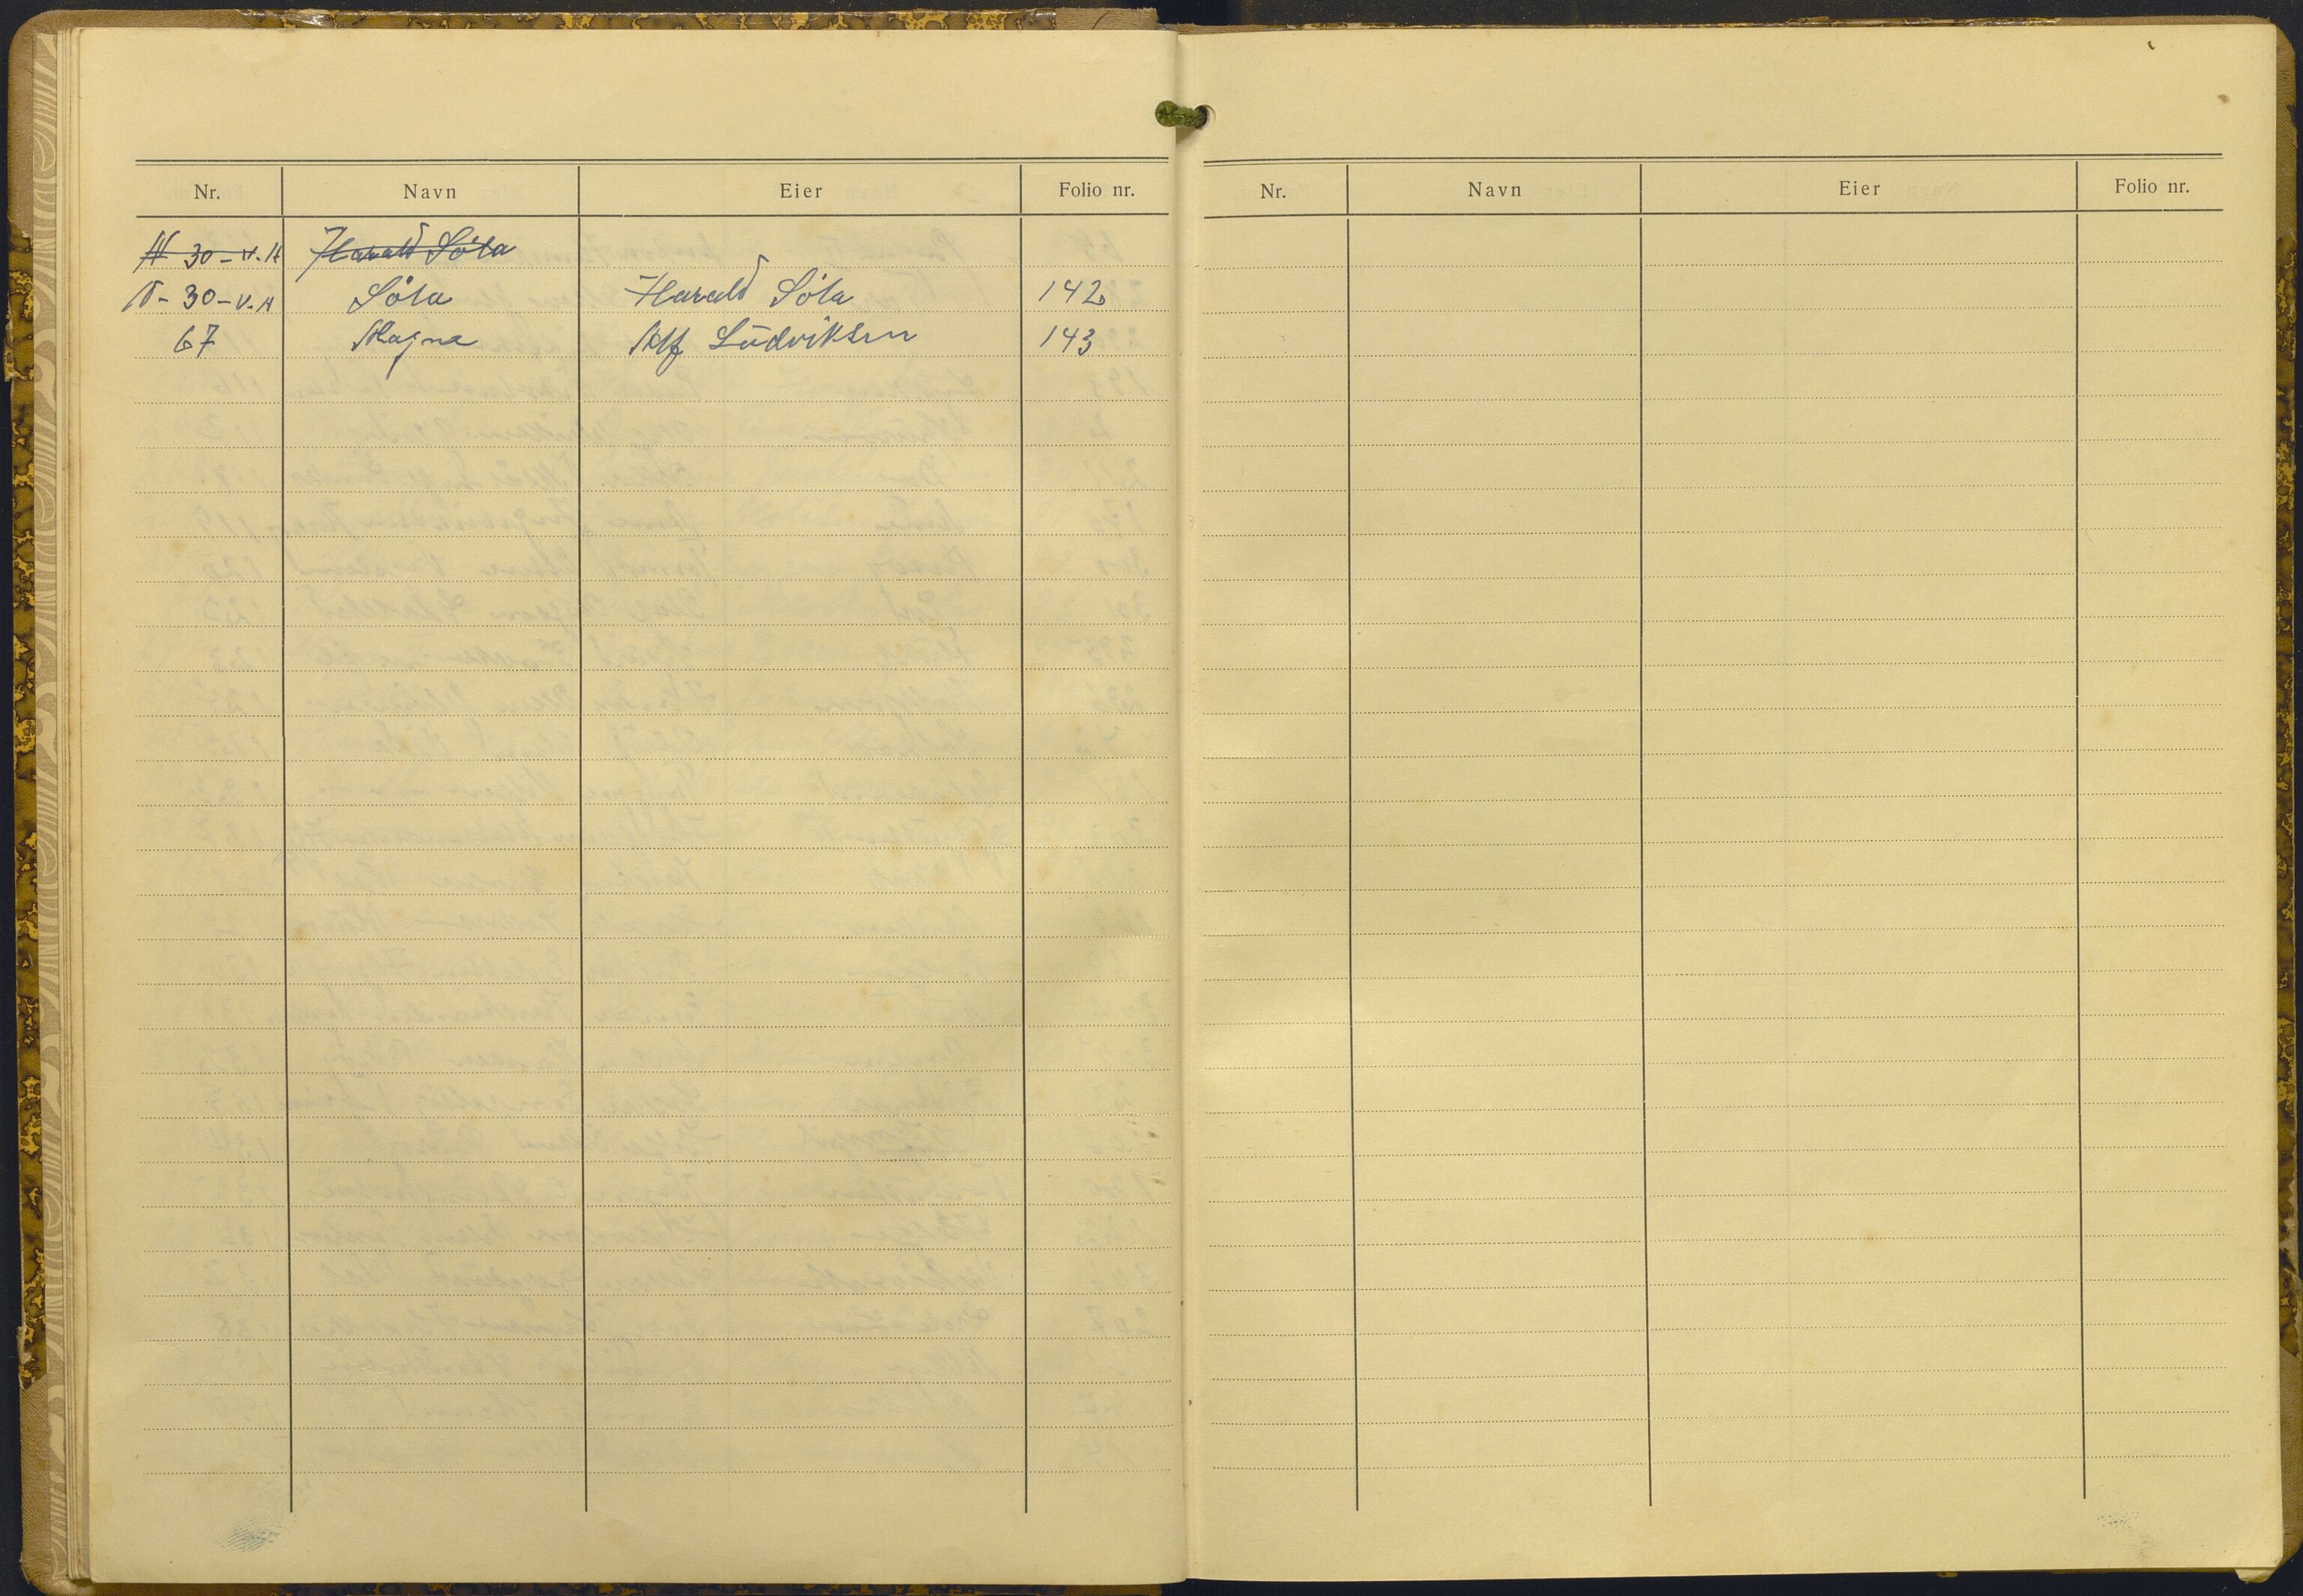 Nr. Navn Eier Folio nr.
N-30-V.A Harald Söla
N-30-V.A Söla Harald Söla 142
67 Magne Alf Ludviksen 143
Nr. Navn Eier Folio nr.